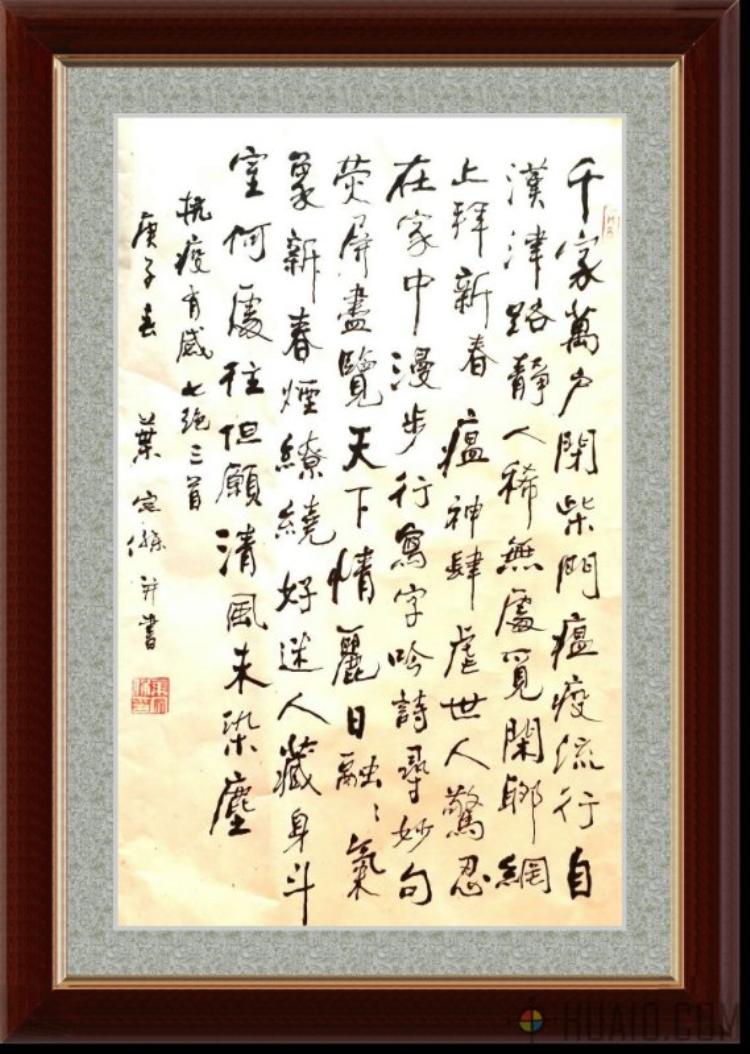 千家萬户閉柴門瘟疫流行自
漢津路靜人稀無處覓閑聊網
上拜新春 瘟神肆虐世人驚忍
在家中漫步行寫字吟詩尋妙句
荧屏盡覽天下情 麗日融〻氣
象新春煙繚繞好迷人藏身斗
室何處往但願清風未染塵
抗疫有感七絶三首
庚子春 葉 并書
HUAIO.COM